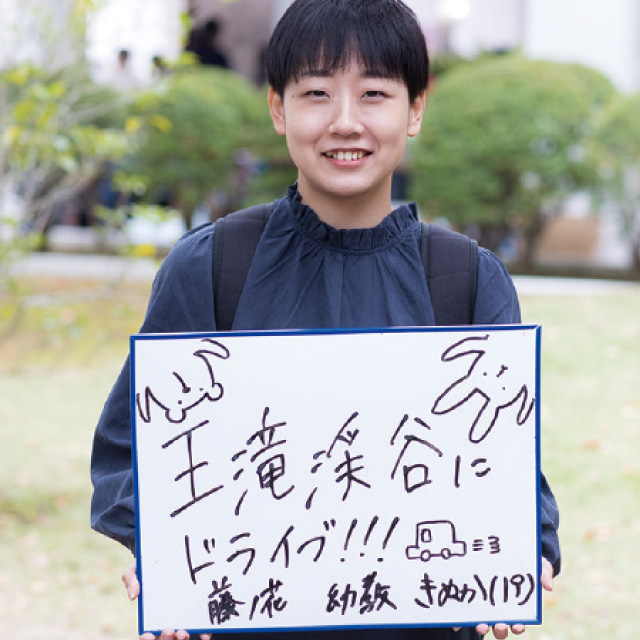 王滝渓谷に
ドライブ!!!
藤ノ花 幼教 きぬか(19)